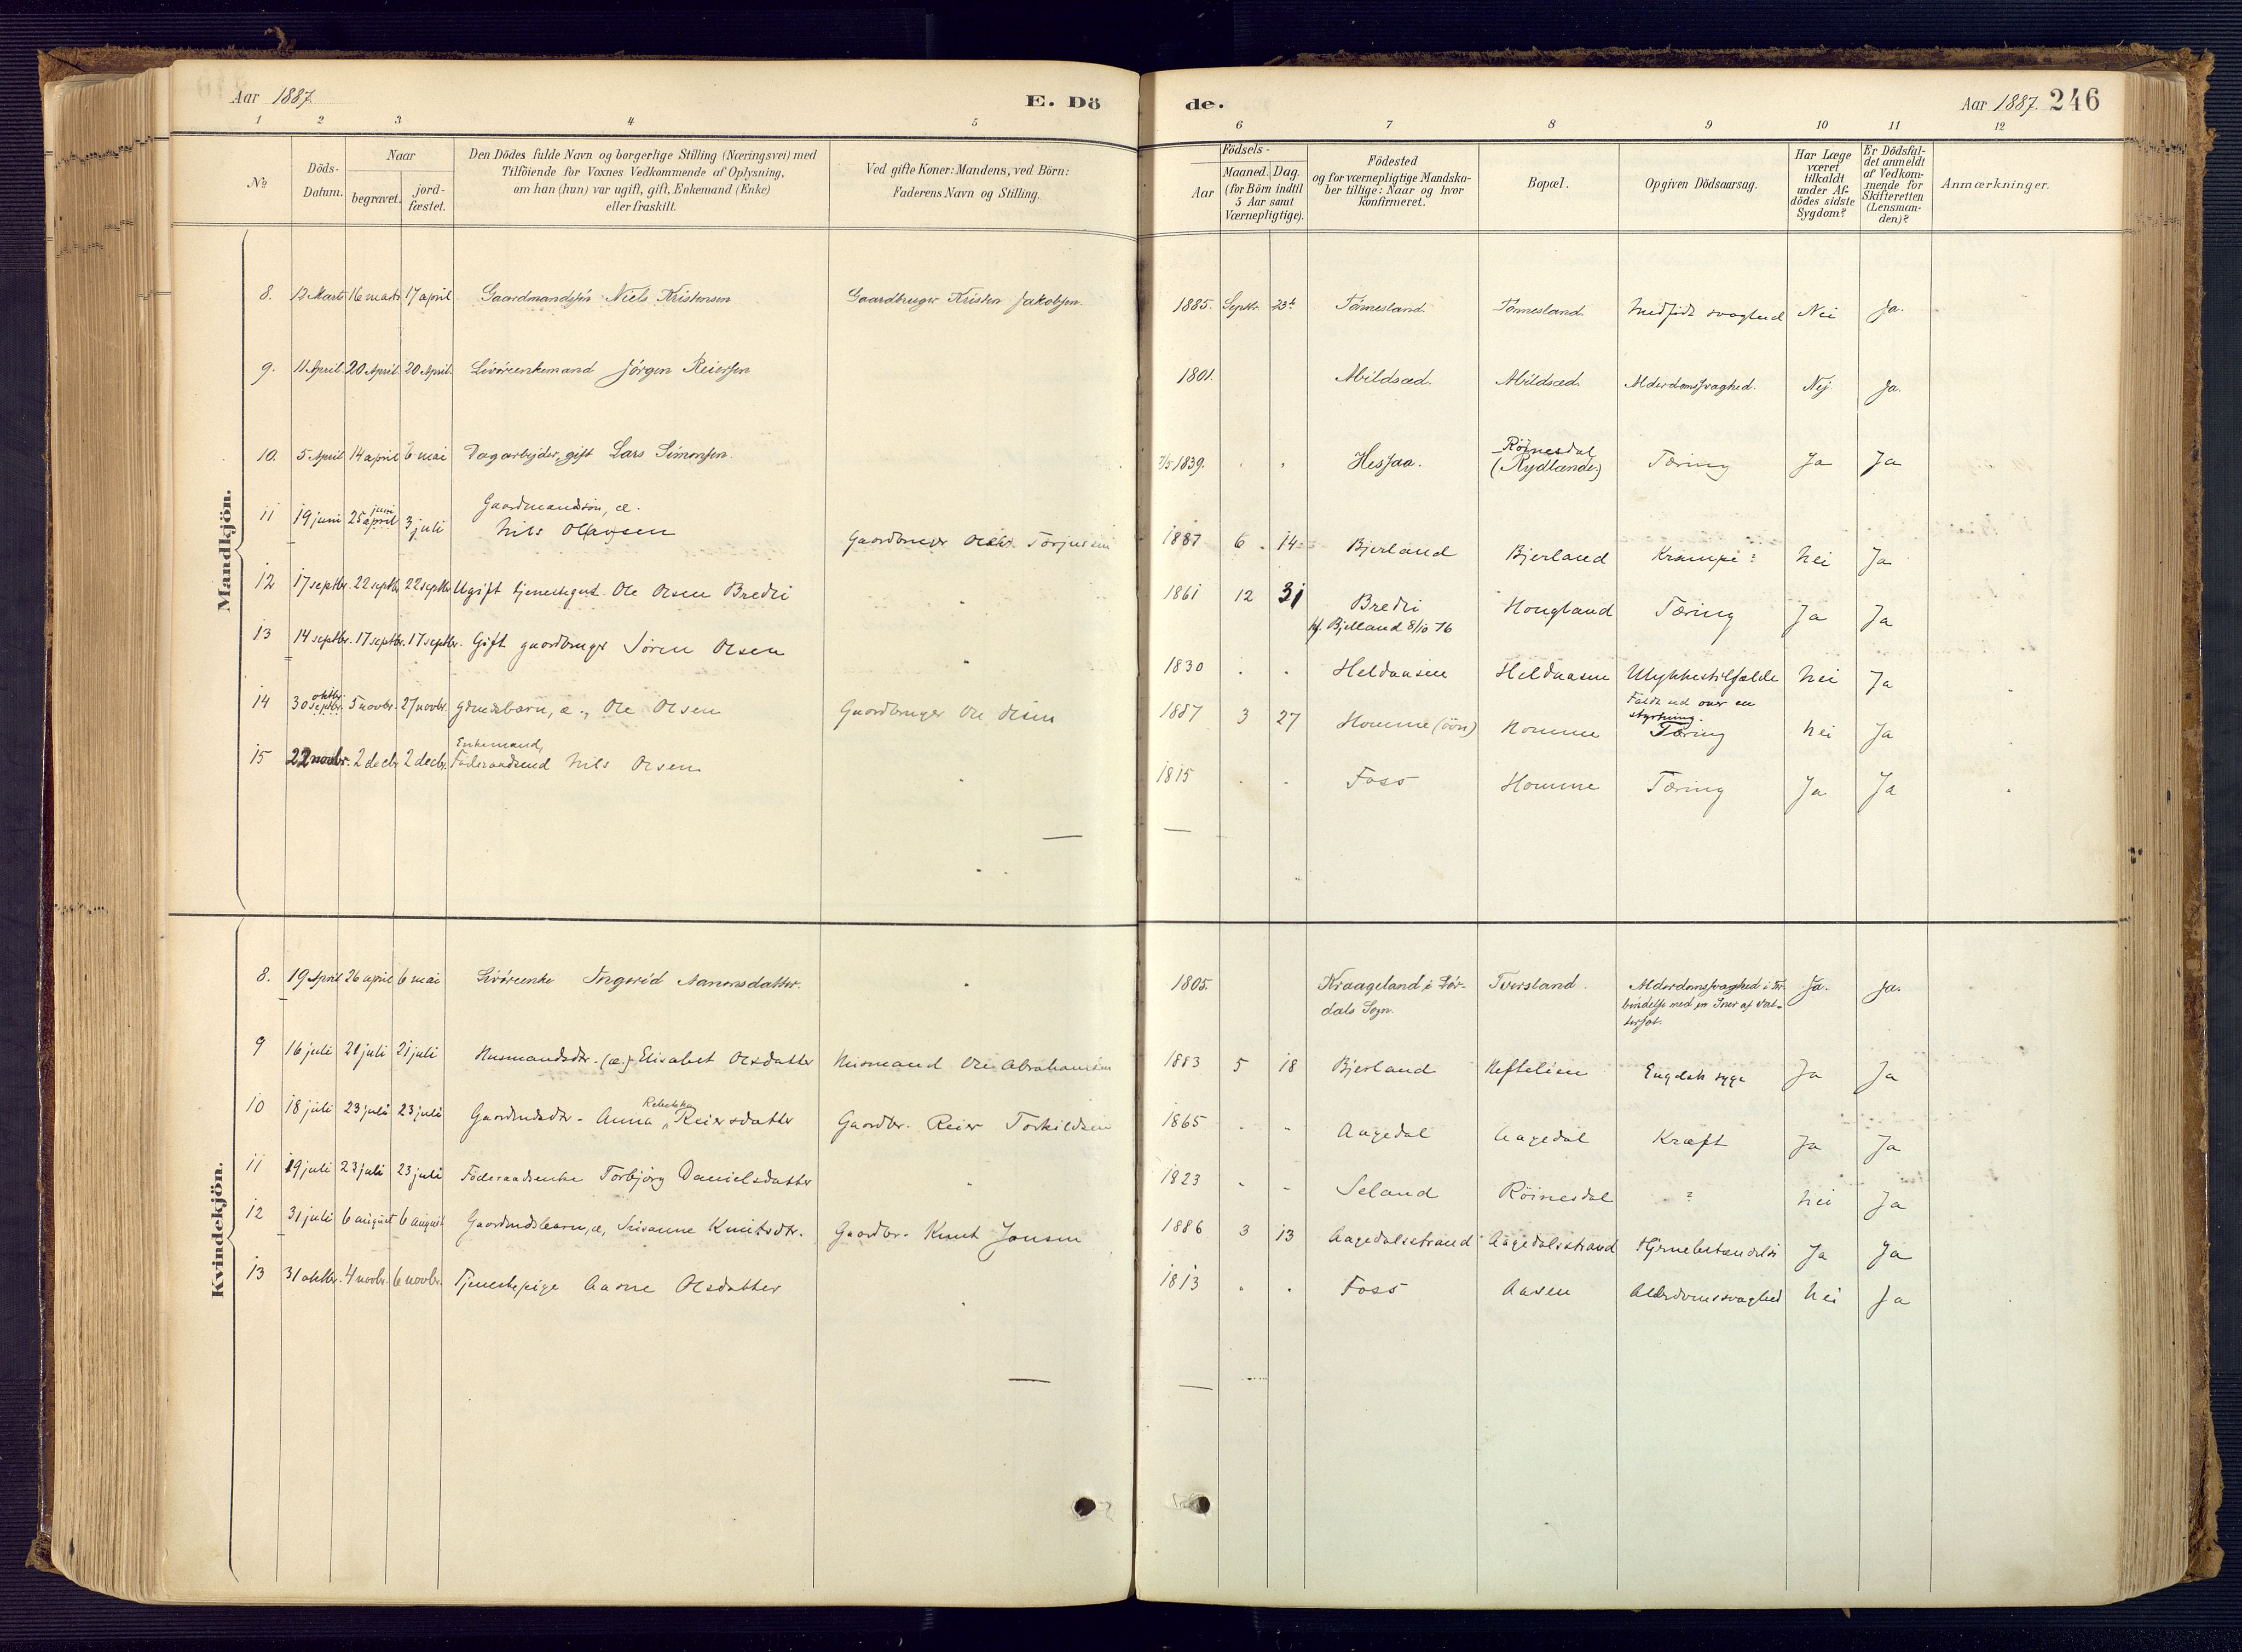 Aar 1887. E. Dö de. Aar 1887. 246
1 2 3 4 5 6 7 8 9 10 11 12
№ Döds-Datum. Naar begravet. jord-fæstet. Den Dödes fulde Navn og borgerlige Stilling (Næringsvei) med Tilföiende for Voxnes Vedkommende af Oplysning, om han (hun) var ugift, gift, Enkemand (Enke) eller fraskilt. Ved gifte Koner: Mandens, ved Börn: Faderens Navn og Stilling. Födsels- Aar Maaned. Dag. (for Börn indtil 5 Aar samt Værnepligtige). Födested og for værnepligtige Mandska-ber tillige: Naar og hvor konfirmeret. Bopæl. Opgiven Dödsaarsag. Har Læge været tilkaldt under Af-dödes sidste Sygdom? Er Dödsfal-det anmeldt af Vedkom-mende for Skifteretten (Lensman-den)? Anmærkninger.
Mandkjön.
8. 12 Marts 16 marts 17 april Gaardmandssön Niels Kristensen Gaardbruger Kristen Jakobsen. 1885. Septbr. 23de Tonnesland. Tonnesland. Medfödt svaghed Nei Ja.
9. 11 April. 20 April. 20 April. Livöreenkemand Jörgen Reiersen 1801. Abildsæd. Abildsæd. Alderdomssvaghed. Nej. Ja.
10. 5 April 14 april 6 mai Dagarbejder, gift Lars Simonsen. 7/5 1839. Hessaa. Röinesdal (Rydlande) Tæring Ja Ja
11 19 juni 25 april juni 3 juli Gaardmandsön, æ. Nils Olavsen Gaardbruger Torjusen 1887 6 14 Bjerland Bjerland Krampe? Nei Ja
12 17 septbr. 22 septbr 22 septbr Ugift tjenestegut Ole Olsen Bredli 1861 12 31 Bredli kf. Bjelland 8/10 76 Hougland Tæring Ja Ja
13 14 septbr. 17 septbr. 17 septbr. Gift gaardbruger Sören Olsen 1830 Heldaasen Heldaasen Ulykkestilfælde Faldt ud over en styrtning. Nei Ja
14 30 septbr. oktbr. 5 novbr. 27 novbr. æ., Ole Olsen Gaardbruger Ole Olsen 1887 3 27 Homme (öön) Homme Tæring Nei Ja
15 22 novbr. 2 decbr 2 decbr. Enkemand, Föderaadsmd Nils Olsen 1815 Foss Homme Tæring Ja Ja
Kvindekjön.
8. 19 April 26 april 6 mai Livöreenke Ingerid Aanonsdatter. 1805. Kraageland i Lör-dals Sogn. Tversland. Alderdomssvaghed i For-bindelse med en Snev af Vat-tersot. Ja. Ja.
9 16 juli 21 juli 21 juli Husmandsdtr. (æ.) Elisabet Olsdatter Husmand Ole Abrahamsen 1883 5 18 Bjerland Heftelien Engelsk syge Ja Ja
10 18 juli 23 juli 23 juli Gaardmdsdtr. Anna Rebekka Reiersdatter Gaardbr. Reier Torkildsen 1865 Aagedal Aagedal Kræft Ja Ja
11 19 juli 23 juli 23 juli Föderaadsenke Torbjörg Danielsdatter 1823 Seland Röinesdal ? Nei Ja
12 31 juli 6 august 6 august Gaardmdsbarn, æ, Susanne Knutsdtr. Gaardbr. Knut Jonsen 1886 3 13 Aagedalsstrand Aagedalsstrand Hjernebetændelse Ja Ja
13 31 oktbr. 4 novbr. 6 novbr. Tjenestepige Aasne Olsdatter 1813 Foss Aasen Alderdomssvaghed Nei Ja